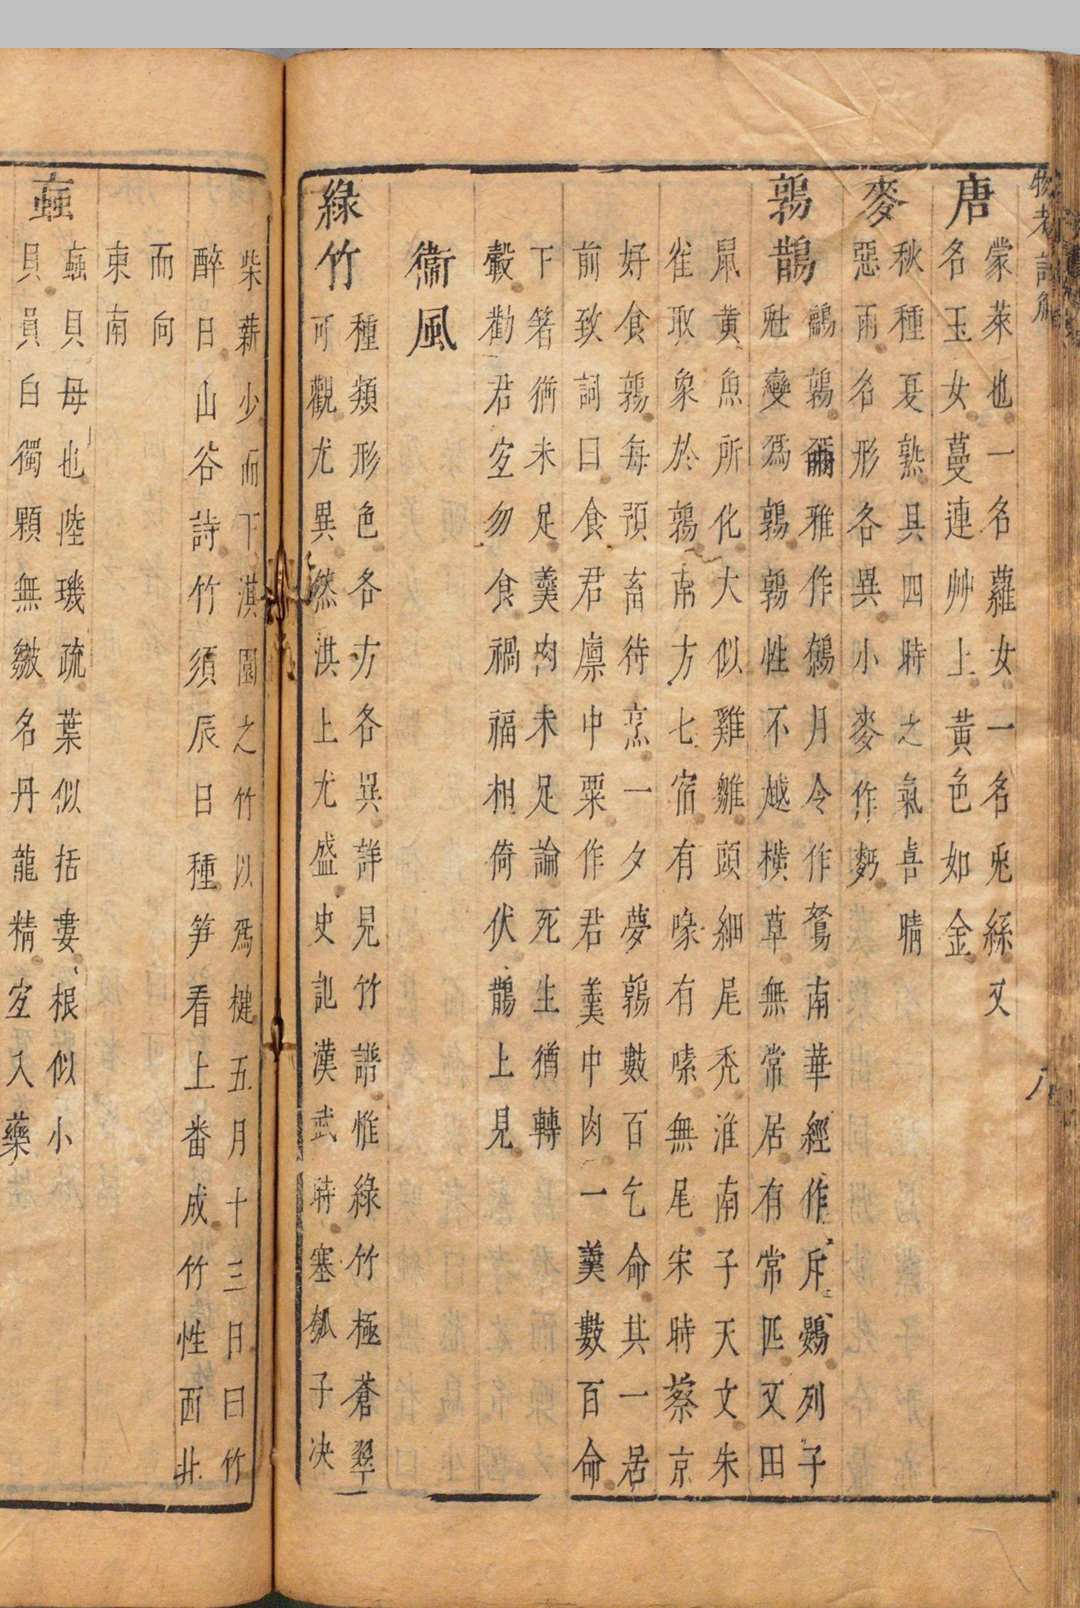 唐
蒙菜也一名蘿女一名兎絲又
名玉女蔓連艸上黃色如金
麥
秋種夏熟具四時之氣喜晴
惡雨名形各異小麥作麪
鶉鵲
鶉爾雅作鶕月令作鴽南華經作斥鷃列子
變爲鶉鶉性不越橫草無常居有常匹又田
鼠黃魚所化大似雞雛頭細尾秃淮南子天文朱
雀取象於鶉南方七宿有喙有嗉無尾宋時蔡京
好食鶉每預畜待烹一夕夢鶉數百乞命其一居
前致詞曰食君廩中粟作君羹中肉一羹數百命
下箸猶未足羹肉未足論死生猶轉
轂勸君宜勿食禍福相倚伏鵲上見
衞風
綠竹
種類形色各方各異詳見竹譜惟綠竹極蒼翠
可觀尤異然淇上尤盛史記漢武時塞瓠子决
柴薪少而下淇園之竹以爲楗五月十三日曰竹
醉日山谷詩竹須辰日種笋看上番成竹性西北
而向
東南
蝱
蝱貝母也陸璣疏葉似括婁根似小
貝員白獨顆無皺名丹龍精宜入藥